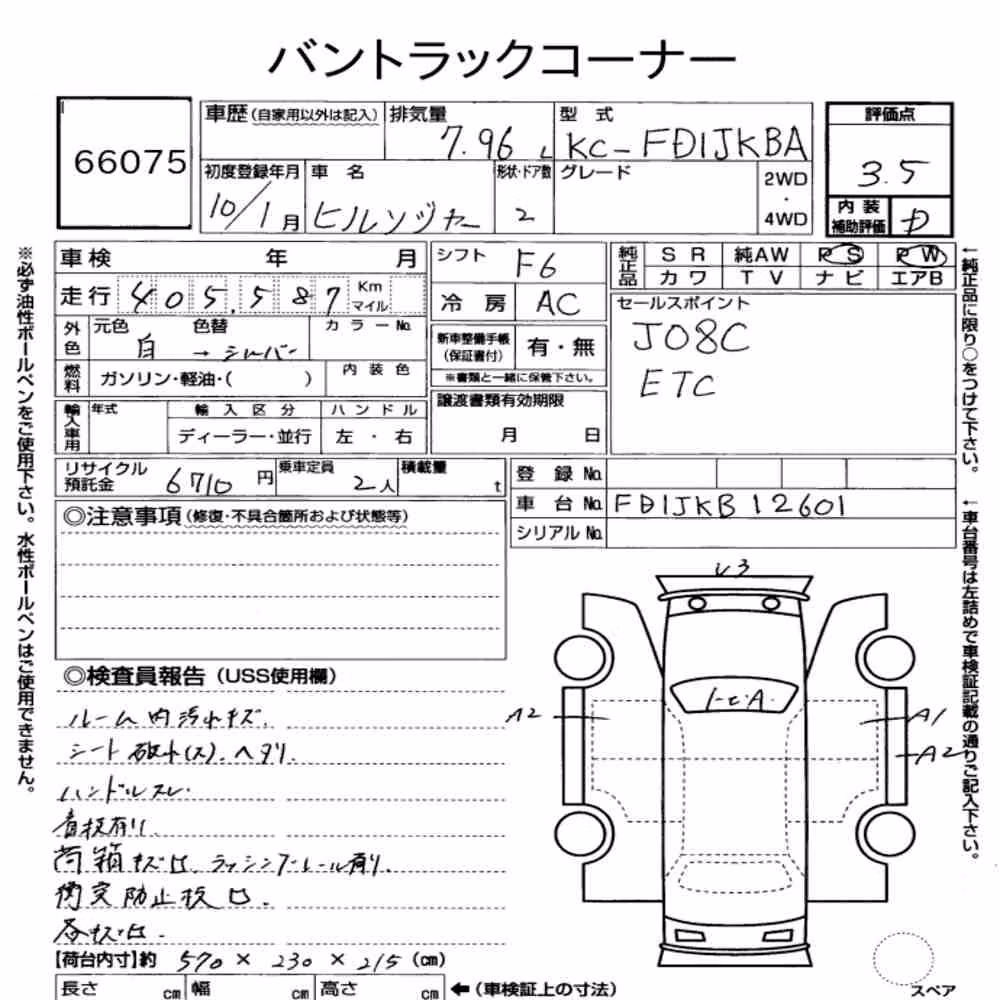 バントラックコーナー
66075
車歴(自家用以外は記入) 排気量 型式 評価点
7.96 L KC-FD1JKBA 3.5
初度登録年月 車名 形状・ドア数 グレード 2WD・4WD
10/1月 ヒルンジャー 2
内装補助評価 D
車検 年 月 シフト F6
走行 405,587 Km マイル 冷房 AC
純正品 SR 純AW PS PW
カワ TV ナビ エアB
外色 元色 色替 カラーNo.
白→シルバー
新車整備手帳(保証書付) 有・無
※書類と一緒に保管下さい。
セールスポイント
J08C
ETC
燃料 ガソリン・軽油・( ) 内装色
譲渡書類有効期限
月 日
輸入車用 年式 輸入区分 ハンドル
ディーラー・並行 左・右
リサイクル預託金 6710円 乗車定員 2人 積載量 t
登録No.
車台No. FD1JKB12601
シリアルNo.
◎注意事項(修復・不具合箇所および状態等)
◎検査員報告(USS使用欄)
ルーム内汚れキズ.
シート破れ(ス).ヘタリ.
ハンドルスレ.
荷箱キズ凹、ラッシングレール有り.
衝突防止板凹.
各キズ凹.
【荷台内寸】約 570 × 230 × 215 (cm)
長さ cm 幅 cm 高さ cm ←(車検証上の寸法)
A2
A1
A2
スペア
※必ず油性ボールペンをご使用下さい。水性ボールペンはご使用できません。
←純正品に限り○をつけて下さい。
←車台番号は左詰めで車検証記載の通りご記入下さい。